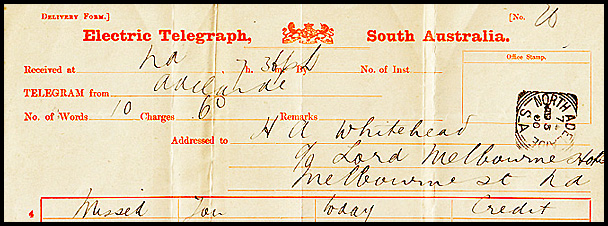 [DELIVERY FORM.] [No. 20
Electric Telegraph, South Australia.
Office Stamp.
Received at Na 7h. 36m By No. of Inst
TELEGRAM from Adelaide
No. of Words 10 Charges 6d Remarks
NORTH ADELAIDE
S.A
Addressed to H A Whitehead
c/o Lord Melbourne Hotel
Melbourne st Na
4 Missed You today Credit